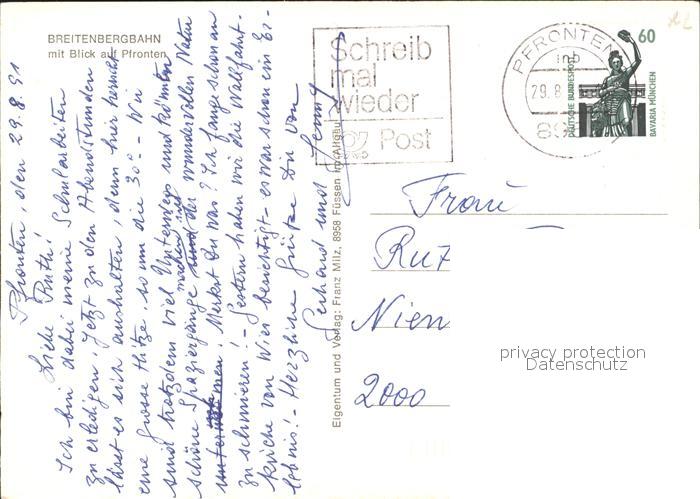 BREITENBERGBAHN
mit Blick auf Pfronten
Pfronten, den 29.8.91
Liebe Ruth!
Ich bin dabei meine Schularbeiten
zu erledigen. Jetzt zu den Abendstunden
lässt es sich aushalten, denn hier herrscht
eine grosse Hitze, so um die 30°. – Wir
sind trotzdem viel Unterwegs und können
schöne Spaziergänge machen in der wundervollen Natur
Merkst Du was? Ich fange schon an
zu schmieren! – Gestern haben wir die Wallfahrt-
kirche von Wies besichtigt – es war schon ein Er-
lebnis! – Herzliche Grüße Dir von
Gerhard und Jenny
Eigentum und Verlag: Franz Milz, 8958 Füssen im Allgäu
Schreib
mal
wieder
Post
PFRONTEN
29.8
60
DEUTSCHE BUNDESPOST
BAVARIA MÜNCHEN
Frau
Rut
Nien
2000
privacy protection
Datenschutz